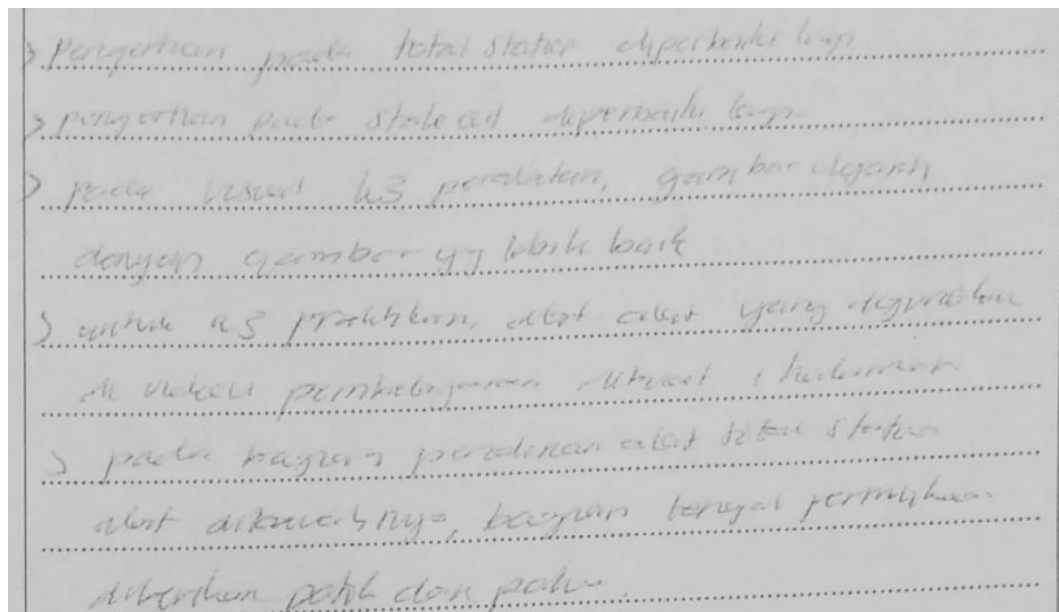 > Pengertian pada total station diperbaiki lagi
> pengertian pada stake out diperbaiki lagi
> pada visual k3 peralatan, gambar diganti
dengan gambar yg lebih baik
> untuk k3 praktikan, alat alat yang digunakan
di video pembelajaran dibuat 1 halaman
> pada bagian pendirian alat total station
alat dibawahnya, bagian tengah permukaan
diberikan patok dan paku.